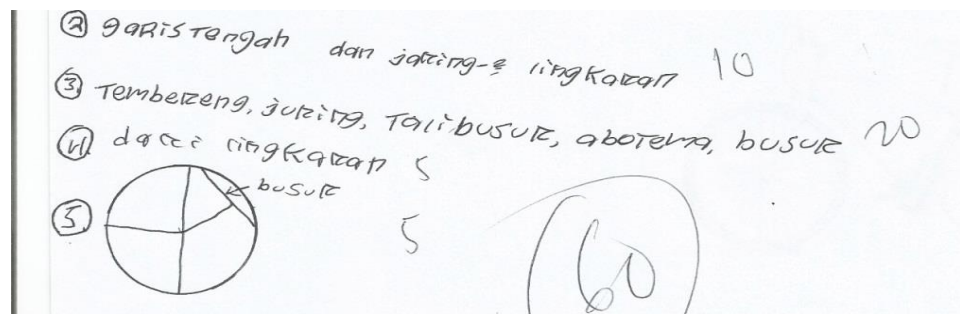 ② garis tengah dan jaring-2 lingkaran 10
③ Tembereng, juring, Tali busur, abotema, busur 20
④ dari lingkaran 5
busur
⑤ 5
60